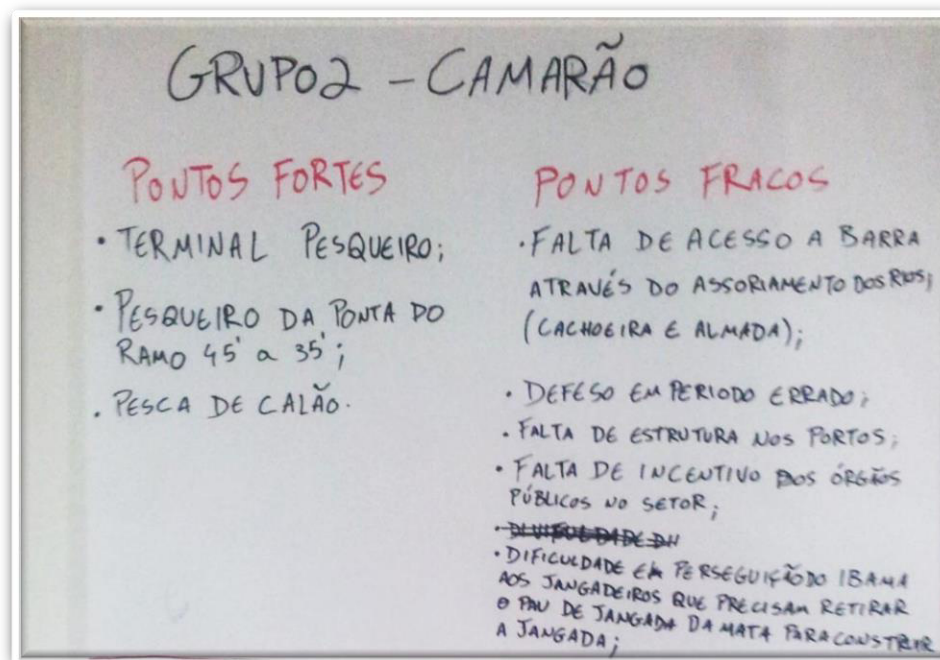 GRUPO2 - CAMARÃO
PONTOS FORTES
• TERMINAL PESQUEIRO;
• PESQUEIRO DA PONTA DO
RAMO 45' a 35';
. PESCA DE CALÃO.
PONTOS FRACOS
• FALTA DE ACESSO A BARRA
ATRAVÉS DO ASSORIAMENTO DOS RIOS;
(CACHOEIRA E ALMADA);
• DEFESO EM PERIODO ERRADO;
• FALTA DE ESTRUTURA NOS PORTOS;
• FALTA DE INCENTIVO DOS ÓRGÃOS
PÚBLICOS NO SETOR;
• DIFICULDADE EM PERSEGUIÇÃO DO IBAMA
AOS JANGADEIROS QUE PRECISAM RETIRAR
O PAU DE JANGADA DA MATA PARA CONSTRUIR
A JANGADA;